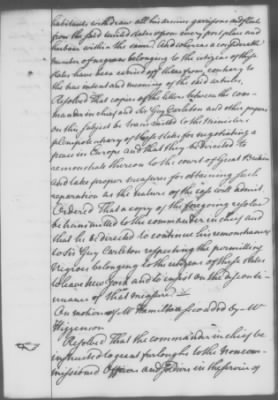 habitants withdraw all his armies garrisons and fleets
from the said united states & from every port place and
harbour within the same. And whereas a considerable
number of negroes belonging to the citizens of these
states have been carried off therefrom contrary to
the true intent and meaning of the said articles,
Resolved That copies of the letters between the com-
mander in chief and Sir Guy Carleton and other papers
on this subject be transmitted to the Ministers
plenipotentiary of these states for negotiating a
peace in Europe and that they be directed to
remonstrate thereon to the court of Great Britain
and take proper measures for obtaining such
reparation as the nature of the case will admit.
Ordered That a copy of the foregoing resolve
be transmitted to the commander in chief and
that he be directed to continue his remonstrances
to Sir Guy Carleton respecting the permitting
Negroes belonging to the citizens of these states
to leave New York and to insist on the discontin-
uance of that measure.
On motion of Mr Hamilton seconded by Mr
Higgenson
Resolved That the commander in chief be
instructed to grant furloughs to the noncom-
missioned Officers and soldiers in the service of